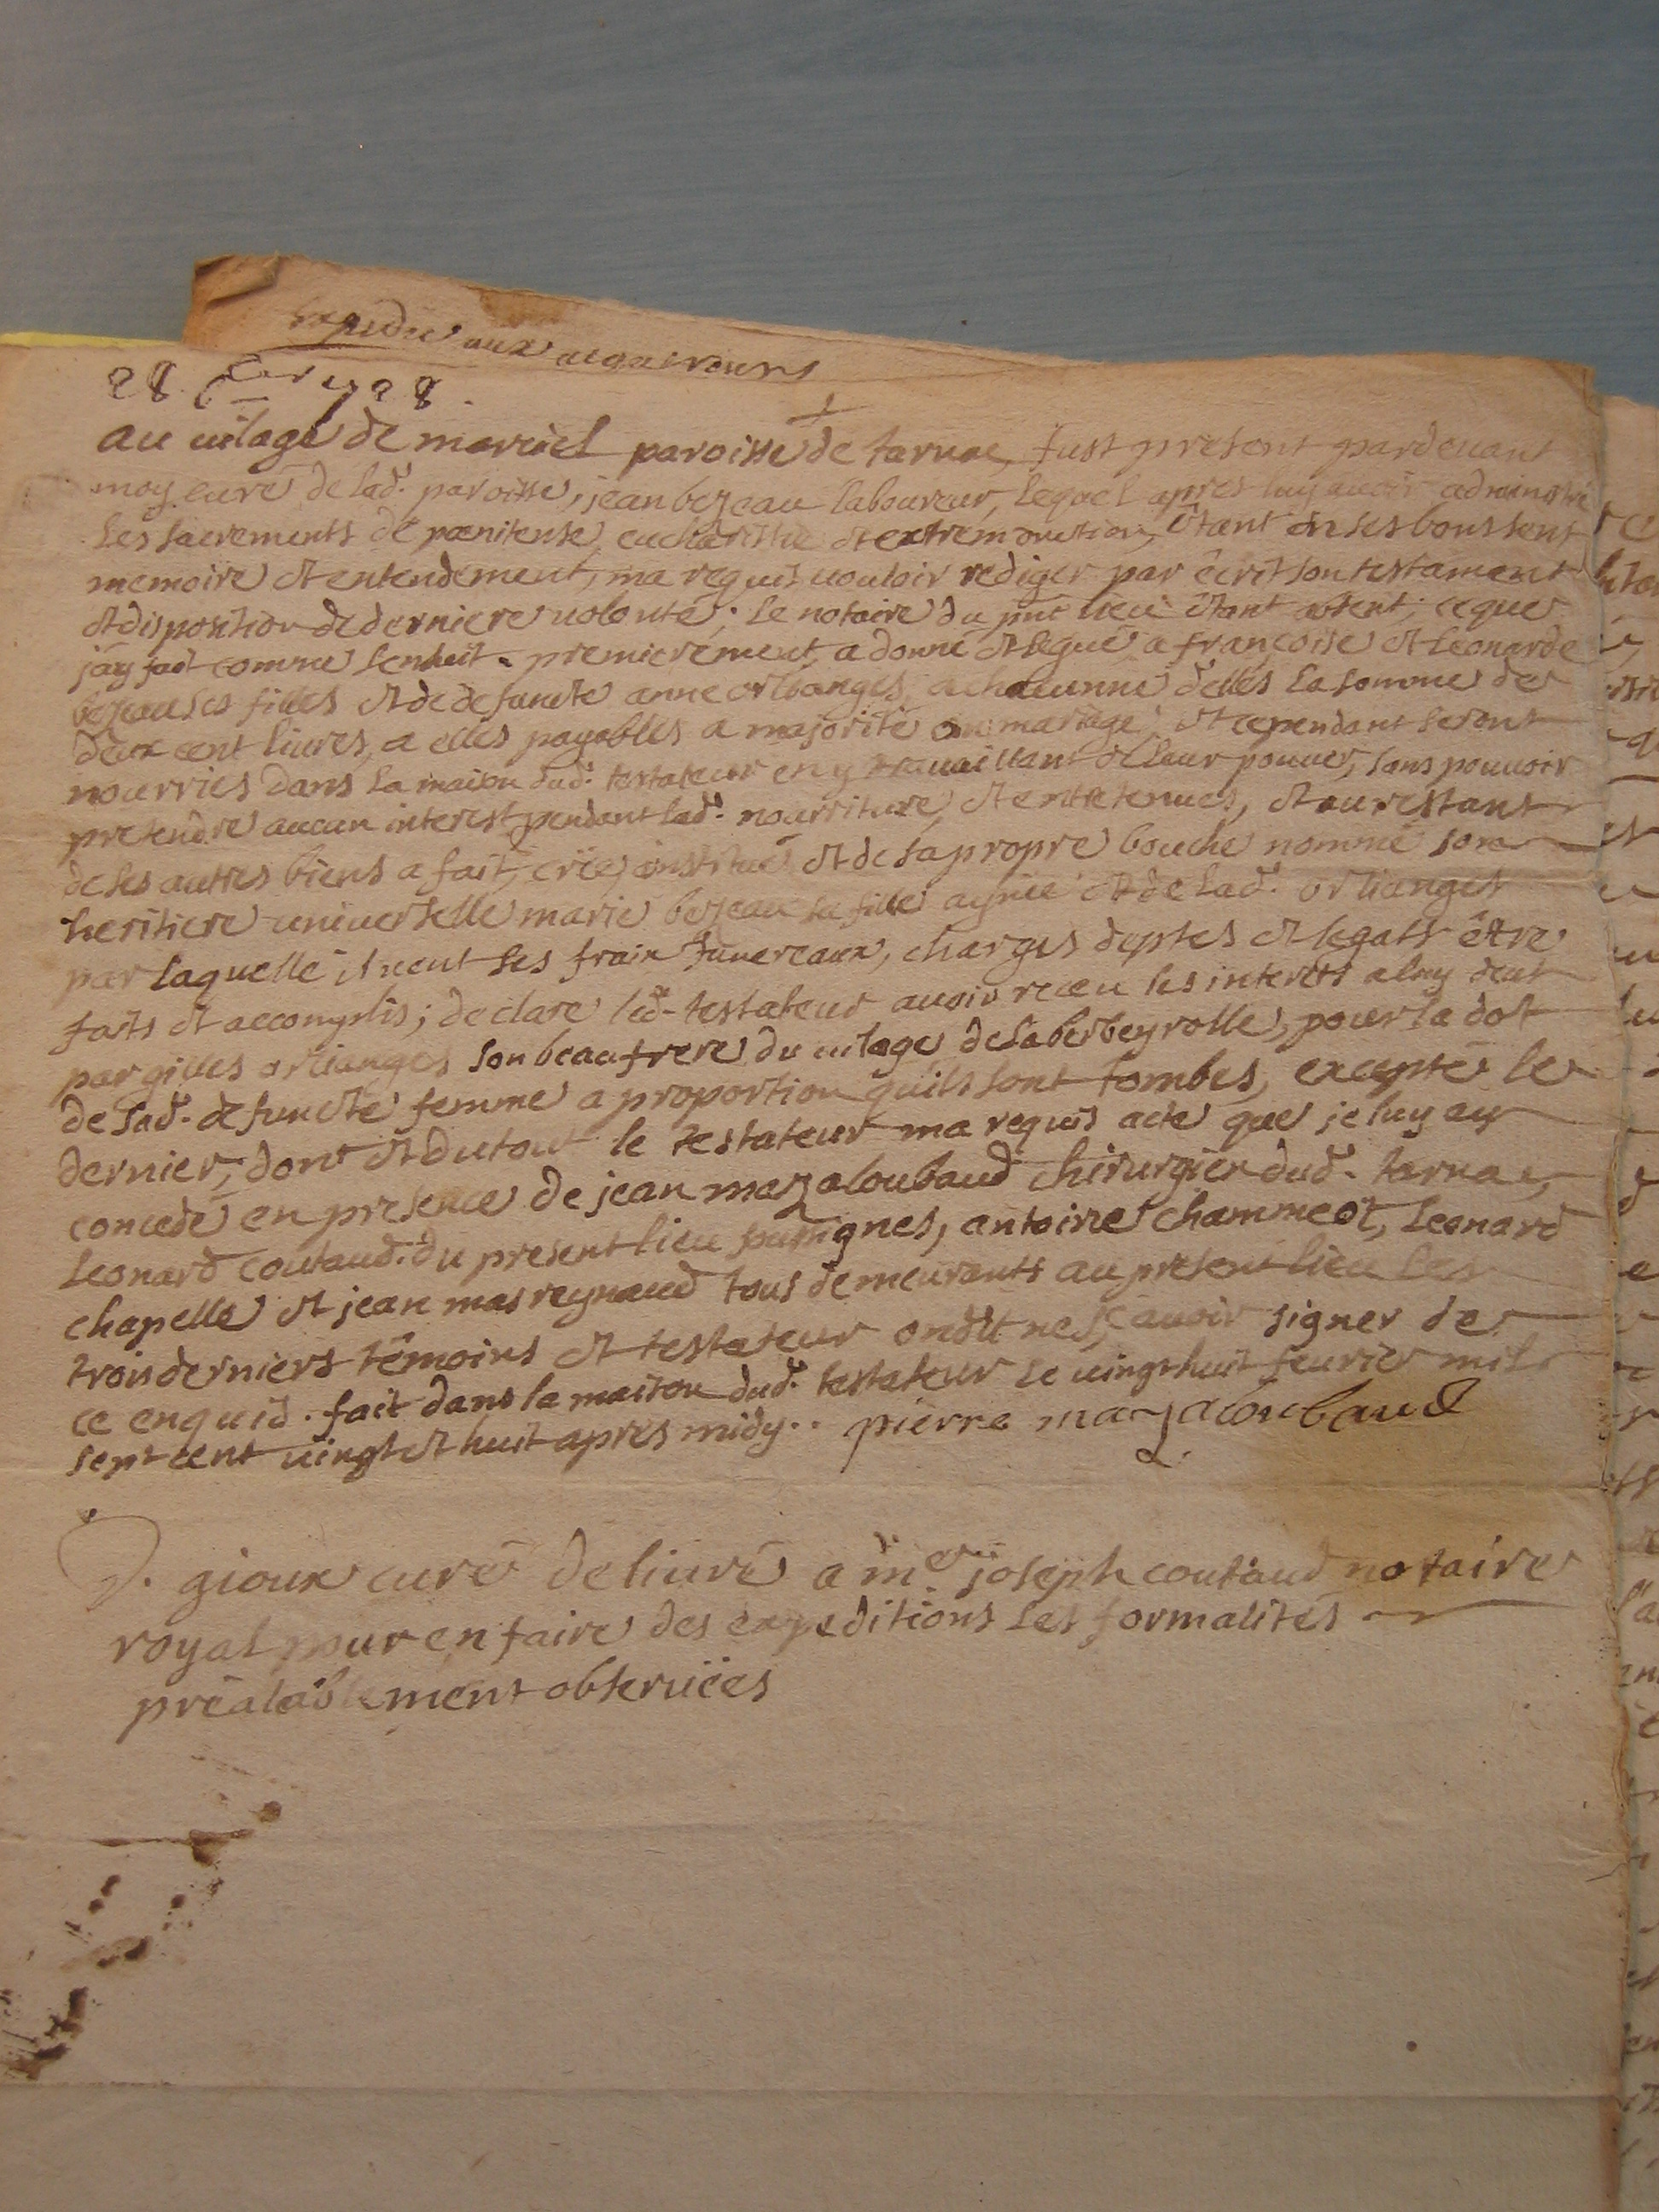 expedié aux acquereurs
28 fer 1728.
au vilage de marciel paroisse de tarnac, fust present pardevant
moy curé de lad. paroisse, jean bezeau laboureur, lequel apres luy avoir administré
les sacrements de pœnitense, eucharistie et extremonction, êtant en ses bons sens
memoire et entendement, ma requis vouloir rediger par êcrit son testament
et disposition de derniere volonté; le notaire du pnt lieu êtant absent; ce que
jay fait comme sensuit. premierement, a donné et legué a françoise et leonarde
bezeau ses filles et de defuncte anne orlianges, a chacunne d'elles la somme de
deux cent livres, a elles payables a majorité ou mariage; et cependant seront
nourries dans la maison dud. testateur en y travaillant de leur pouver, sans pouvoir
pretendre aucun interest pendant lad. nourriture, et entretenues, et au restant
de ses autres biens a fait, créé, institué et de sa propre bouche nommé son
heritiere universelle marie bezeau sa fille aynée et de lad. orlianges
par laquelle il veut ses fraix funereaux, charges deptes et legats être
faits et accomplis; declare led. testateur avoir receu les interets a luy deut
par gilles orlianges son beaufrere du vilage de laberbeyrolle, pour la dot
de lad. defuncte femme a proportion quils sont tombes, excepté le
dernier, dont et du tout le testateur ma requis acte que je luy ay
concedé en presence de jean mazaloubaud chirurgien dud. tarnac,
leonard coutaud. du present lieu soussignes, antoine chammeot, leonard
chapelle et jean masreynaud tous demeurants au present lieu les
trois derniers têmoins et testateur ondit ne sçavoir signer de
ce enquis. fait dans la maison dud. testateur le vingt huit fevrier mil
sept cent vingt et huit apres midy.. pierre mazaloubaud
gioux curé delivré a me. joseph coutaud notaire
royal pour en faire des expeditions les formalités
préalablement observées